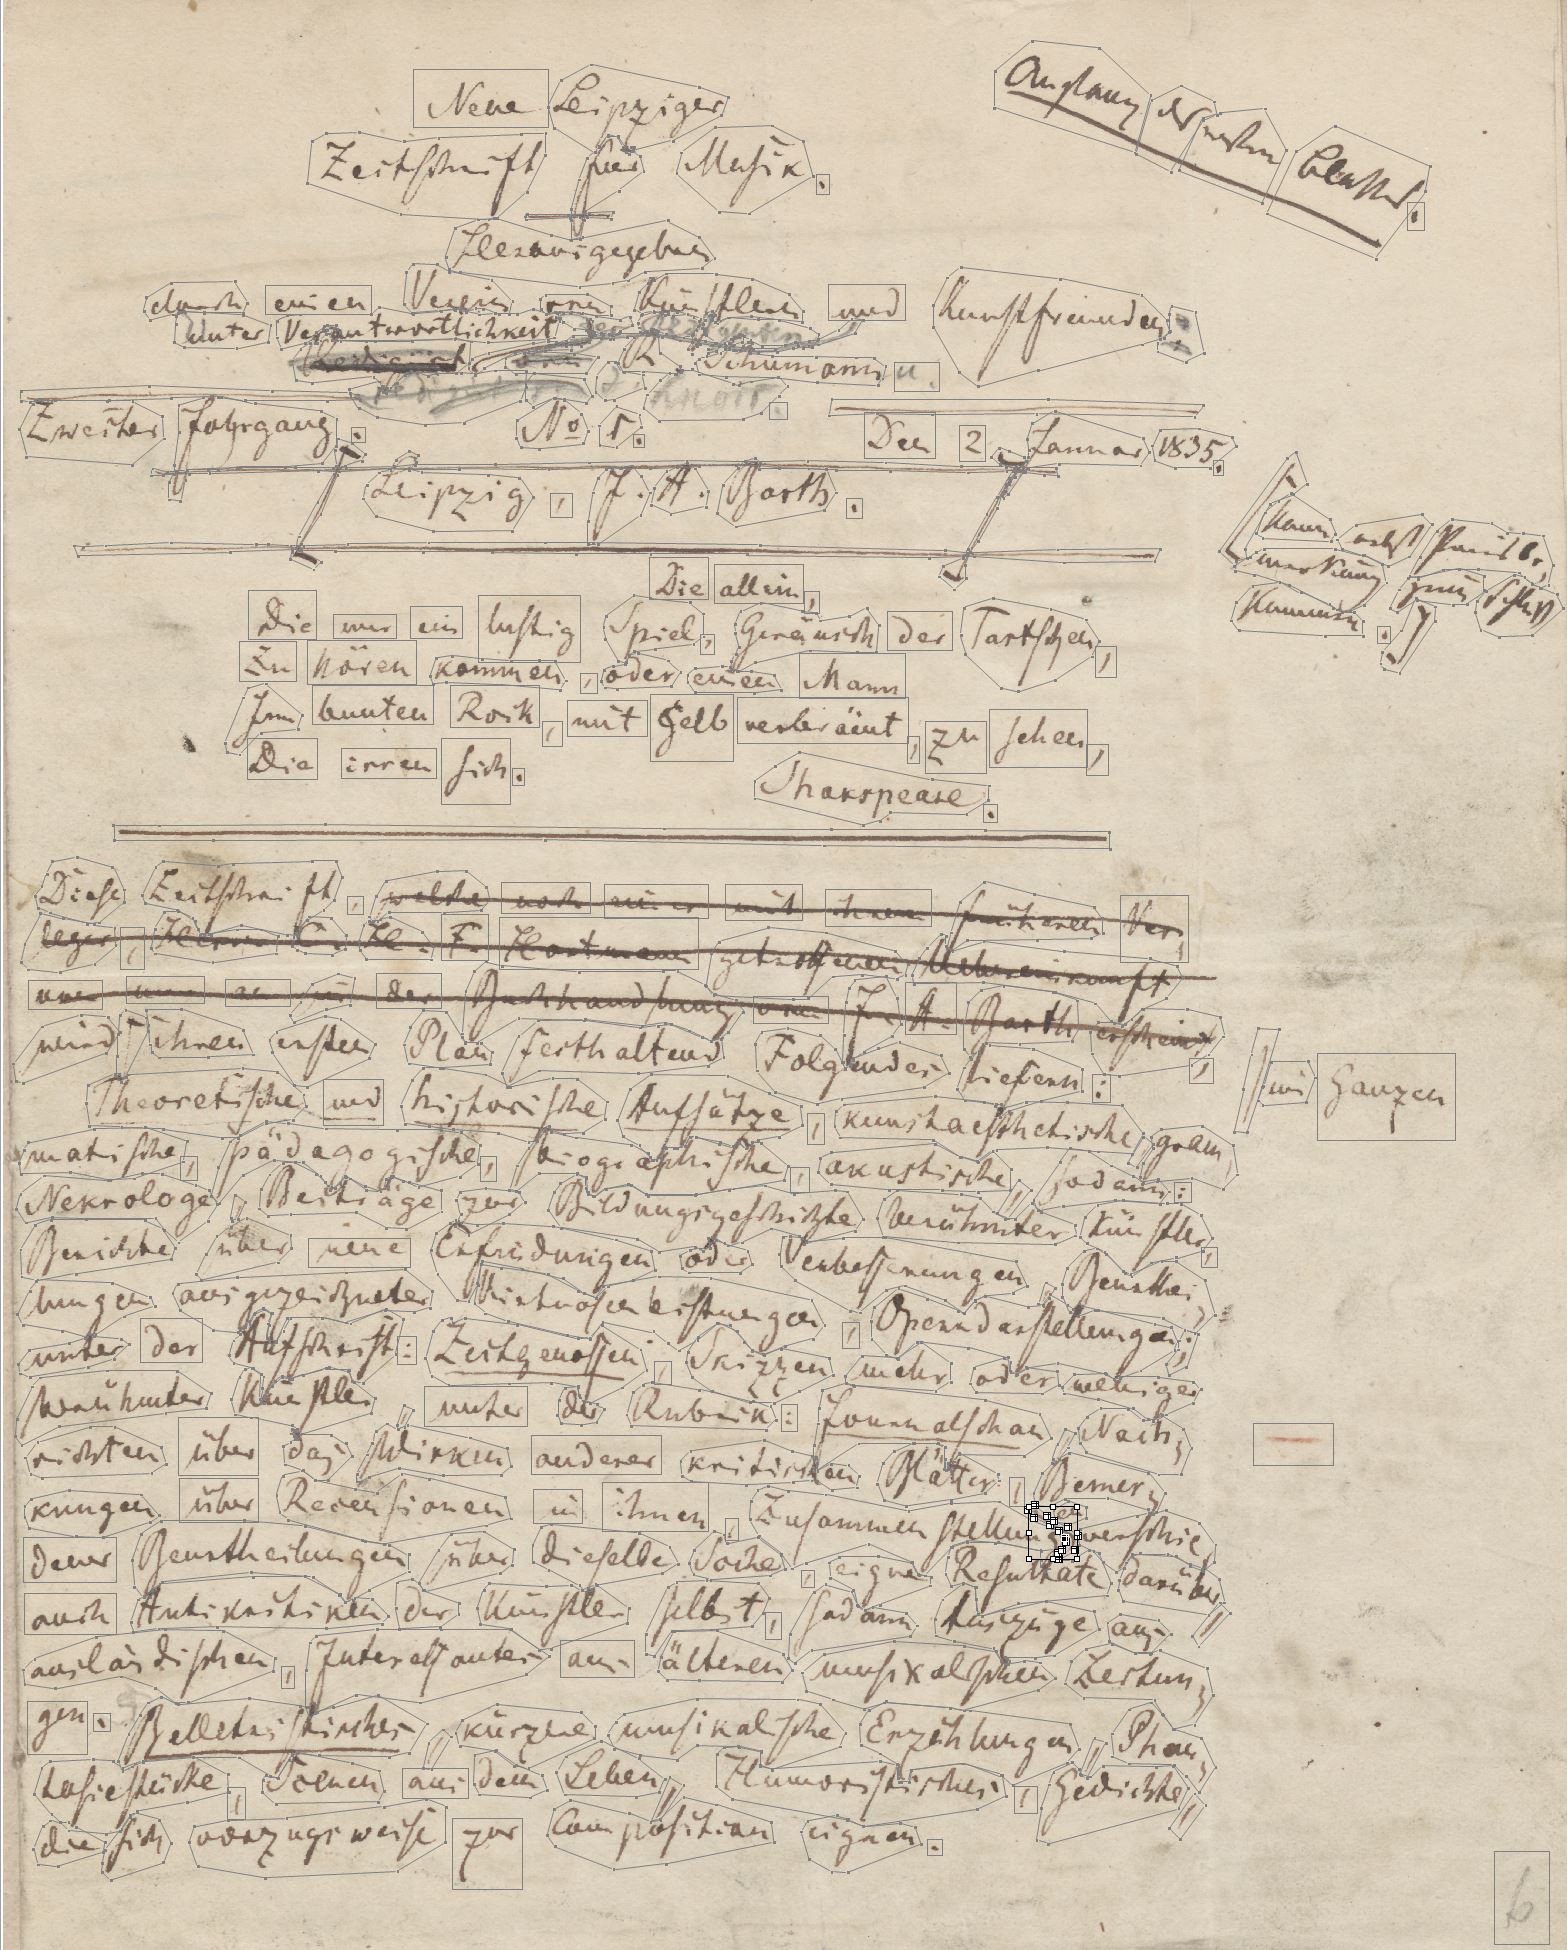 Neue Leipziger
Zeitschrift für Musik.
Herausgegeben
durch einen Verein von Künstlern und Kunstfreunden.
Unter Verantwortlichkeit der
Redigirt von R. Schumann u.
redigirt von J. Knorr.
Zweiter Jahrgang. No 1. Den 2. Januar 1835.
Leipzig, J. A. Barth.
Die allein,
Die nur ein lustig Spiel, Geräusch der Tartschen,
Zu hören kommen, oder einen Mann
Im bunten Rock, mit Gelb verbrämt, zu sehen,
Die irren sich.
Shakspeare.
Diese Zeitschrift, welche nach einer mit ihrem früheren Ver-
leger, Herrn C. H. F. Hartmann getroffenen Uebereinkunft
von nun an in der Buchhandlung von J. A. Barth erscheint,
wird ihren ersten Plan festhaltend Folgendes liefern:
im Ganzen
Theoretische und historische Aufsätze, kunstaesthetische, gram-
matische, pädagogische, biographische, akustische, sodann:
Nekrologe, Beiträge zur Bildungsgeschichte berühmter Künstler,
Berichte über neue Erfindungen oder Verbesserungen, Beurthei-
lungen ausgezeichneter Virtuosenleistungen, Operndarstellungen;
unter der Aufschrift: Zeitgenossen, Skizzen mehr oder weniger
berühmter Künstler, unter der Rubrik: Journalschau, Nach-
richten über das Wirken anderer kritischen Blätter, Bemer-
kungen über Recensionen in ihnen, Zusammenstellung verschie-
dener Beurtheilungen über dieselbe Sache, eigne Resultate darüber,
auch Antikritiken der Künstler selbst, sodann Auszüge aus
ausländischen, Interessantes aus älteren musikalischen Zeitun-
gen. Belletristisches, kürzere musikalische Erzählungen, Phan-
tasiestücke, Scenen aus dem Leben, Humoristisches, Gedichte,
die sich vorzugsweise zur Composition eignen.
6